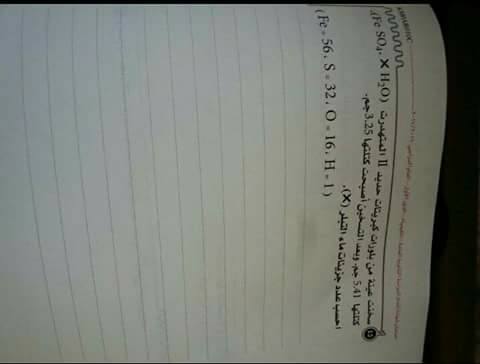 ١٥ سخنت عينة من بلورات كبريتات حديد II المتهدرت (Fe SO₄. X H₂O)
كتلتها 5.41 جم وبعد التسخين أصبحت كتلتها 3.25 جم.
احسب عدد جزيئات ماء التبلر (X).
( Fe = 56 , S = 32 , O = 16 , H = 1 )